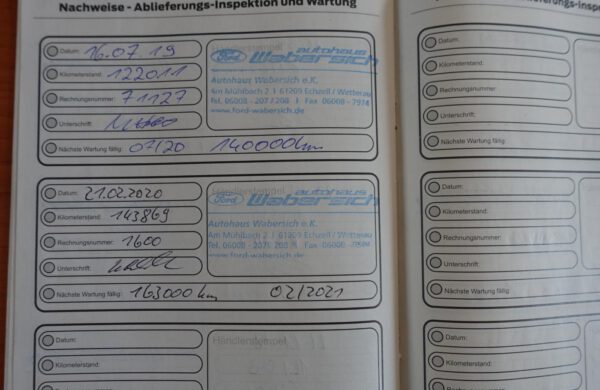 Nachweise - Ablieferungs-Inspektion und Wartung
Datum: 16.07.19
Kilometerstand: 122011
Rechnungsnummer: 71127
Unterschrift:
Nächste Wartung fällig: 07/20 140000km
Händlerstempel
Ford autohaus Wabersich
Autohaus Wabersich e.K.
Am Mühlbach 2 | 61209 Echzell / Wetterau
Tel. 06008 - 207 / 208 | Fax 06008 - 7974
www.ford-wabersich.de
Datum: 21.02.2020
Kilometerstand: 143869
Rechnungsnummer: 1600
Unterschrift:
Nächste Wartung fällig: 163000 km 02/2021
Händlerstempel
Ford autohaus Wabersich
Autohaus Wabersich e.K.
Am Mühlbach 2 | 61209 Echzell / Wetterau
Tel. 06008 - 207 / 208 | Fax 06008 - 7974
www.ford-wabersich.de
Datum:
Kilometerstand:
Rechnungsnummer:
Händlerstempel
Datum:
Kilometerstand:
Rechnungsnummer:
Unterschrift:
Nächste Wartung fällig:
Datum:
Kilometerstand:
Rechnungsnummer:
Unterschrift:
Nächste Wartung fällig:
Datum:
Kilometerstand:
Rechnungsnummer: